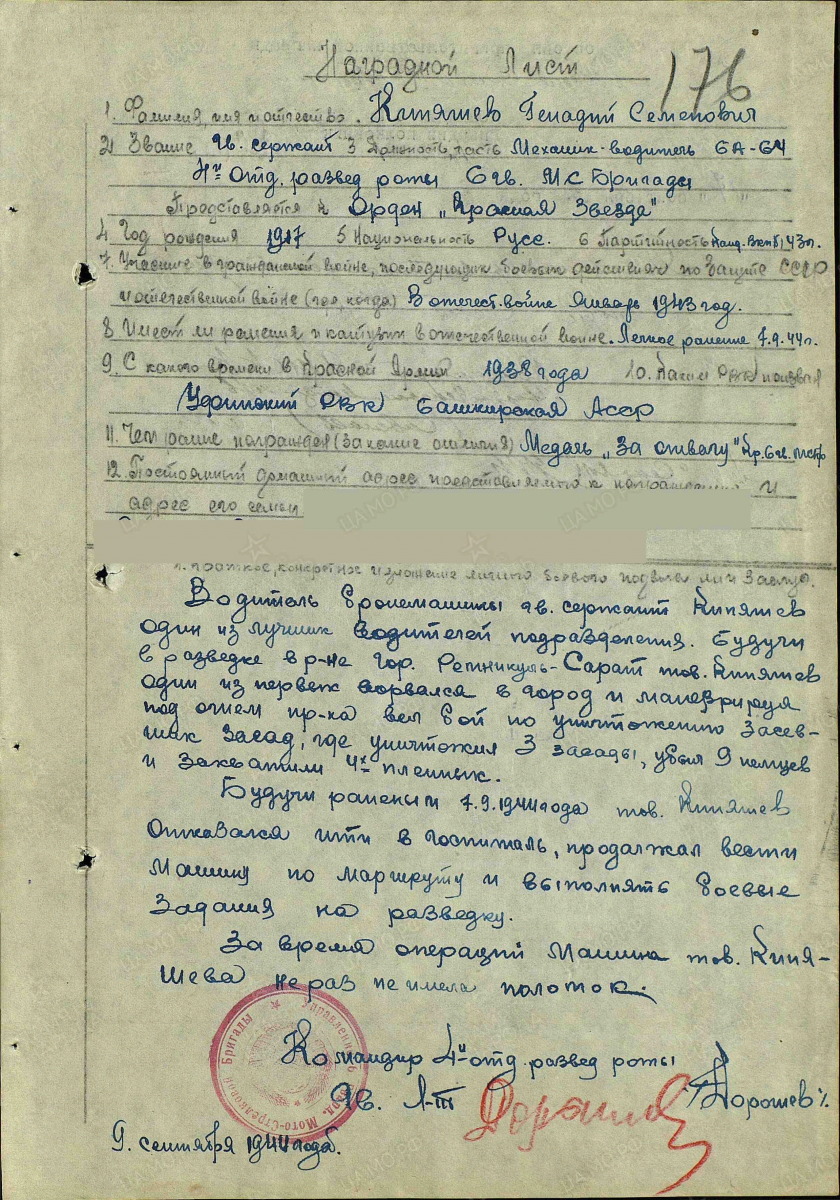 Наградной Лист
176
1. Фамилия, имя и отчество. Киняшев Генадий Семенович
2) Звание гв. сержант 3 Должность, часть Механик-водитель БА-64
4й отд. развед роты 6 гв. МСБригады
Представляется к Орден „Красная Звезда"
4. Год рождения 1917 5 Национальность Русс. 6 Партийность Канд. ВКПб, 43г.
7. Участие в гражданской войне, последующих боевых действиях по защите СССР
и отечественной войне (где, когда) В отечест. войне январь 1943 год.
8 Имеет ли ранения и контузии в отечественной войне. Легкое ранение 7.9.44г.
9. С какого времени в Красной Армии 1938 года 10. Каким РВК призван
РВК Башкирская Асср
11. Чем ранее награжден (за какие отличия) Медаль „За отвагу" Пр. 6 гв. мсбр
12. Постоянный домашний адрес представляемого к и
адрес его семьи
1. Краткое, конкретное изложение личного боевого подвига или заслуг.
Водитель бронемашины гв. сержант Киняшев
один из лучших водителей подразделения. Будучи
в разведке в р-не гор. Сарат тов. Киняшев
один из первых ворвался в город и маневрируя
под огнем пр-ка вел бой по уничтожению засев-
ших засад, где уничтожил 3 засады, убил 9 немцев
и захватили 4х пленных.
Будучи раненым 7.9.1944 года тов. Киняшев
отказался итти в госпиталь, продолжал вести
машину по маршруту и выполнять боевые
задания на разведку.
За время операций машина тов. Киня-
шева не раз не имела поломок.
Командир 4й отд. развед роты
Гв. Л-т Дорошев
9. сентября 1944 года.